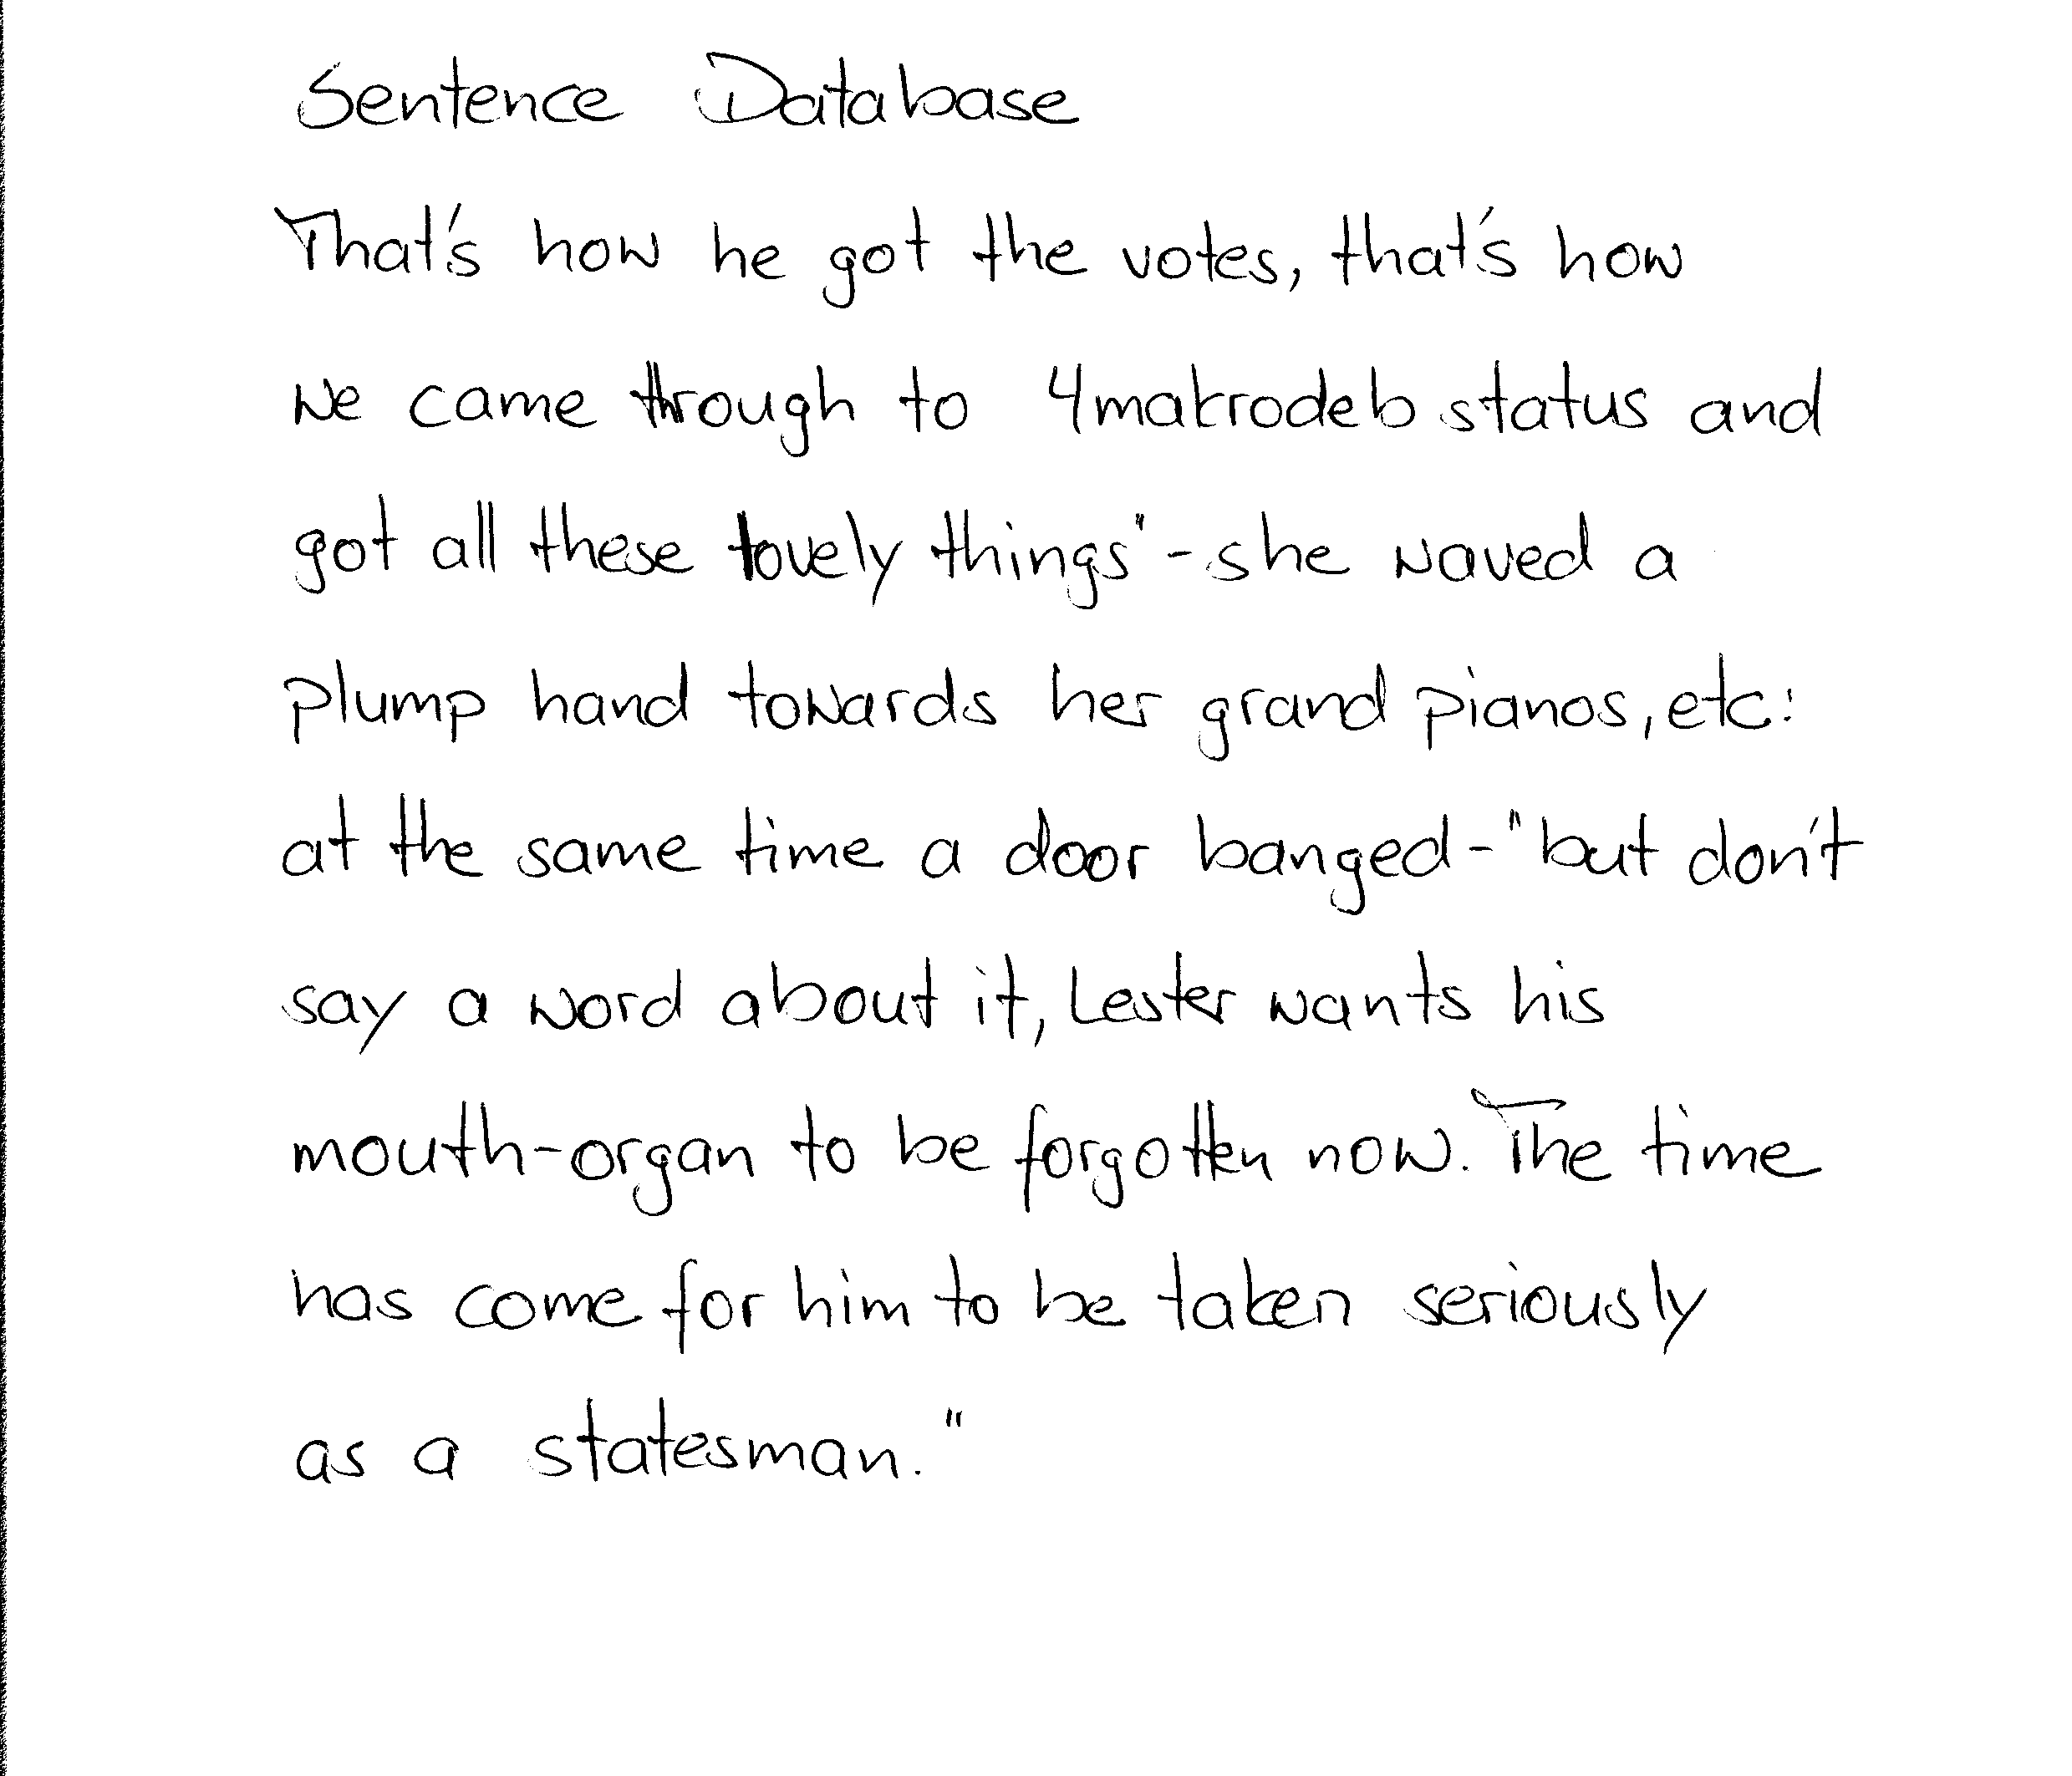 Sentence Database
That's how he got the votes, that's how
we came through to 4makrodeb status and
got all these lovely things"-she waved a
plump hand towards her grand pianos, etc:
at the same time a door banged-"but don't
say a word about it, Lester wants his
mouth-organ to be forgotten now. The time
has come for him to be taken seriously
as a statesman."